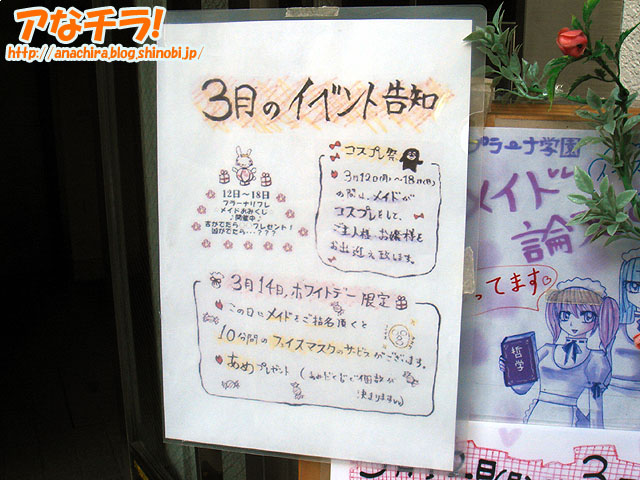 アなチラ!
http://anachira.blog.shinobi.jp/
3月のイベント告知
12日～18日
プラーナリフレ
メイドおみくじ
♪開催中♪
吉がでたら…プレゼント!
凶がでたら…???
コスプレ祭
3月12日(月)～18日(日)
の間、メイドが
コスプレをして、
ご主人様 お嬢様を
お出迎え致します。
3月14日、ホワイトデー限定
この日にメイドをご指名頂くと
10分間のフェイスマスクのサービスがございます。
あめプレゼント(あみだくじで個数が
決まります
プラーナ学園
メイド
論
ってます。
哲学